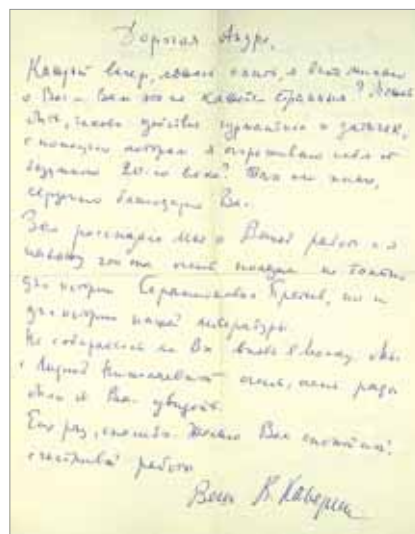 Дорогая Андре,
Каждый вечер, ложась спать, я вспоминаю
о Вас – Вам это не кажется странным? Может
быть, таково действие и затычек,
с помощью которых я огораживаю себя от
безумного 20-го века? Так или иначе,
сердечно благодарю Вас.
Зоя рассказала мне о Вашей работе и я
нахожу что она очень полезна не только
для истории Серапионовых братьев, но и
для истории нашей литературы.
Не собираетесь ли Вы вновь в Москву. Мы
с Лидией Николаевной очень, очень рады
были бы Вас увидеть.
Еще раз, спасибо. Желаю Вам спокойной,
счастливой работы
Ваш В. Каверин